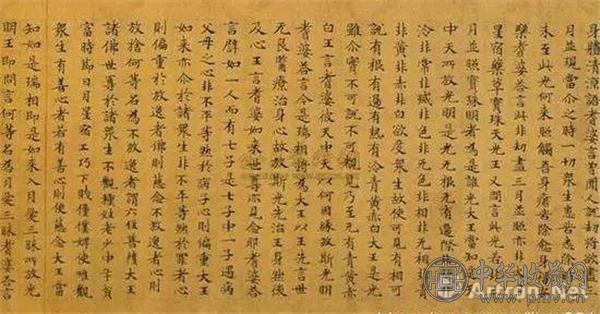 身體清涼語耆婆言曾聞人說劫將欲盡三
月並現當尒之時一切衆生患苦悉除
未至此光何來照觸吾身瘡苦除愈身
樂耆婆答言此非劫盡三月並照亦非
星宿藥草寶珠天光王又問言此光若
月並照寶珠明者為是誰光大王當知
中天所放光明是光无根无有邊際
泠非常非滅非色非无色非相非无相
非黃非赤非白欲度衆生故使可見有相可
說有根有邊有熱有泠青黃赤白大王是光
雖尒實不可說不可覩見乃至无有青黃赤
白王言耆婆彼天中天以何因緣放斯光明
耆婆答言今是瑞相將為大王以王先言世
无良醫療治身心故放斯光先治王身然後
及心王言耆婆如來世尊亦見念耶耆婆答
言譬如一人而有七子是七子中一子遇病
父母之心非不平等然於病子心則偏重大王
如來亦尒於諸衆生非不平等然於罪者心
則偏重於放逸者佛則慈念不放逸者心則
放捨何等名為不放逸者謂六住菩薩大王
諸佛世尊於諸衆生不觀種姓老少中年貧
富時節日月星宿工巧下賤僮僕婢使唯觀
衆生有善心者若有善心則便慈念大王當
知如是瑞相即是如來入月愛三昧所放光
明王即問言何等名為月愛三昧耆婆答言
中华收藏网
Artron.Net